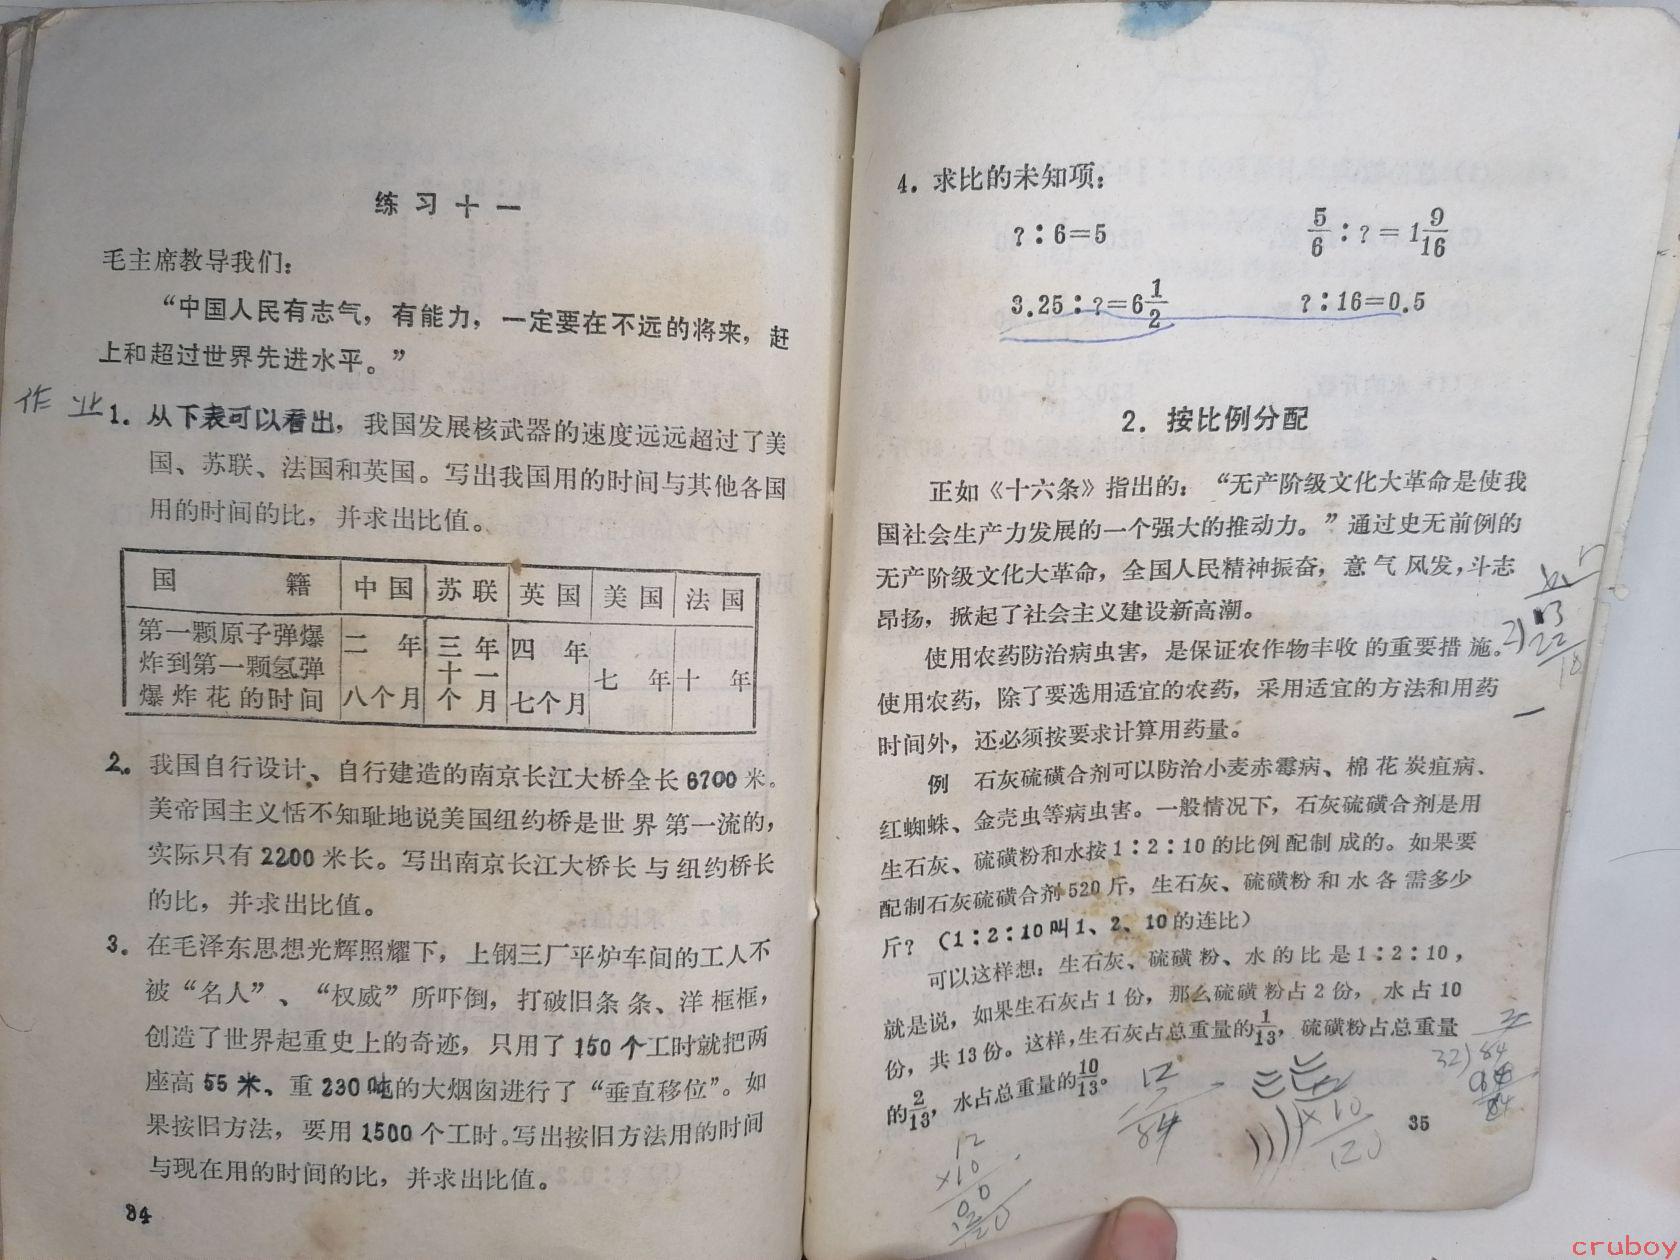 练习十一
毛主席教导我们：
“中国人民有志气，有能力，一定要在不远的将来，赶
上和超过世界先进水平。”
作业
1. 从下表可以看出，我国发展核武器的速度远远超过了美
国、苏联、法国和英国。写出我国用的时间与其他各国
用的时间的比，并求出比值。
国籍 中国 苏联 英国 美国 法国
第一颗原子弹爆 二年 三年 四年
炸到第一颗氢弹 十一 七年 十年
爆炸花的时间 八个月 个月 七个月
2. 我国自行设计、自行建造的南京长江大桥全长6700米。
美帝国主义恬不知耻地说美国纽约桥是世界第一流的，
实际只有2200米长。写出南京长江大桥长与纽约桥长
的比，并求出比值。
3. 在毛泽东思想光辉照耀下，上钢三厂平炉车间的工人不
被“名人”、“权威”所吓倒，打破旧条条、洋框框，
创造了世界起重史上的奇迹，只用了150个工时就把两
座高55米、重230吨的大烟囱进行了“垂直移位”。如
果按旧方法，要用1500个工时。写出按旧方法用的时间
与现在用的时间的比，并求出比值。
34
4. 求比的未知项：
?∶6=5 5/6∶?=1 9/16
3.25∶?=6 1/2 ?∶16=0.5
2. 按比例分配
正如《十六条》指出的：“无产阶级文化大革命是使我
国社会生产力发展的一个强大的推动力。”通过史无前例的
无产阶级文化大革命，全国人民精神振奋，意气风发，斗志
昂扬，掀起了社会主义建设新高潮。
使用农药防治病虫害，是保证农作物丰收的重要措施。
使用农药，除了要选用适宜的农药，采用适宜的方法和用药
时间外，还必须按要求计算用药量。
例 石灰硫磺合剂可以防治小麦赤霉病、棉花炭疽病、
红蜘蛛、金壳虫等病虫害。一般情况下，石灰硫磺合剂是用
生石灰、硫磺粉和水按1∶2∶10的比例配制成的。如果要
配制石灰硫磺合剂520斤，生石灰、硫磺粉和水各需多少
斤？（1∶2∶10叫1、2、10的连比）
可以这样想：生石灰、硫磺粉、水的比是1∶2∶10，
就是说，如果生石灰占1份，那么硫磺粉占2份，水占10
份，共13份。这样，生石灰占总重量的1/13，硫磺粉占总重量
的2/13，水占总重量的10/13。
12
84
×10
120
12
×10
32)84
35
cruboy